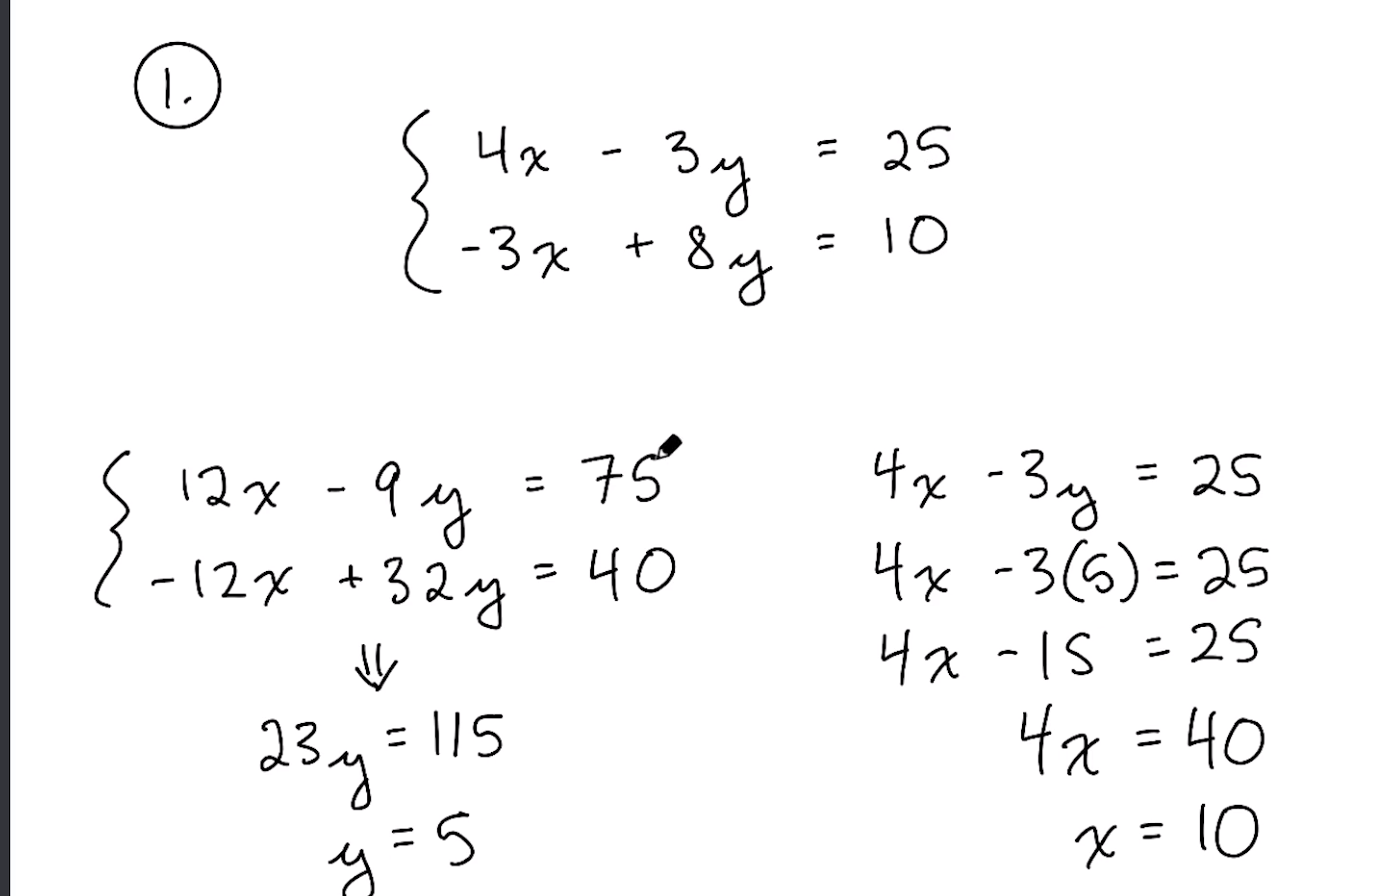 1.
4x - 3y = 25
-3x + 8y = 10
12x - 9y = 75
-12x + 32y = 40
⇓
23y = 115
y = 5
4x - 3y = 25
4x - 3(5) = 25
4x - 15 = 25
4x = 40
x = 10